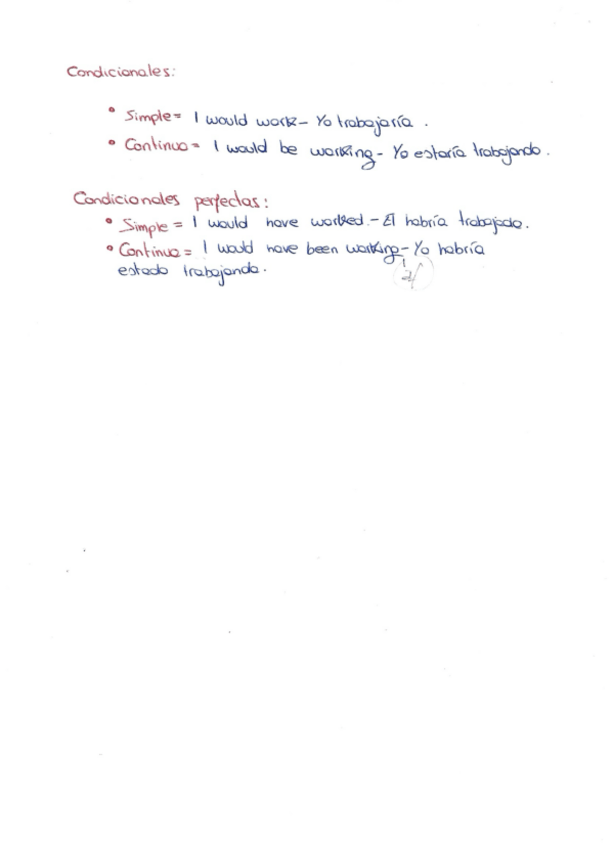 Condicionales:
• Simple = I would work - Yo trabajaría.
• Continuo = I would be working - Yo estaría trabajando.
Condicionales perfectas:
• Simple = I would have worked. - El habría trabajado.
• Continuo = I would have been working - Yo habría
estado trabajando.